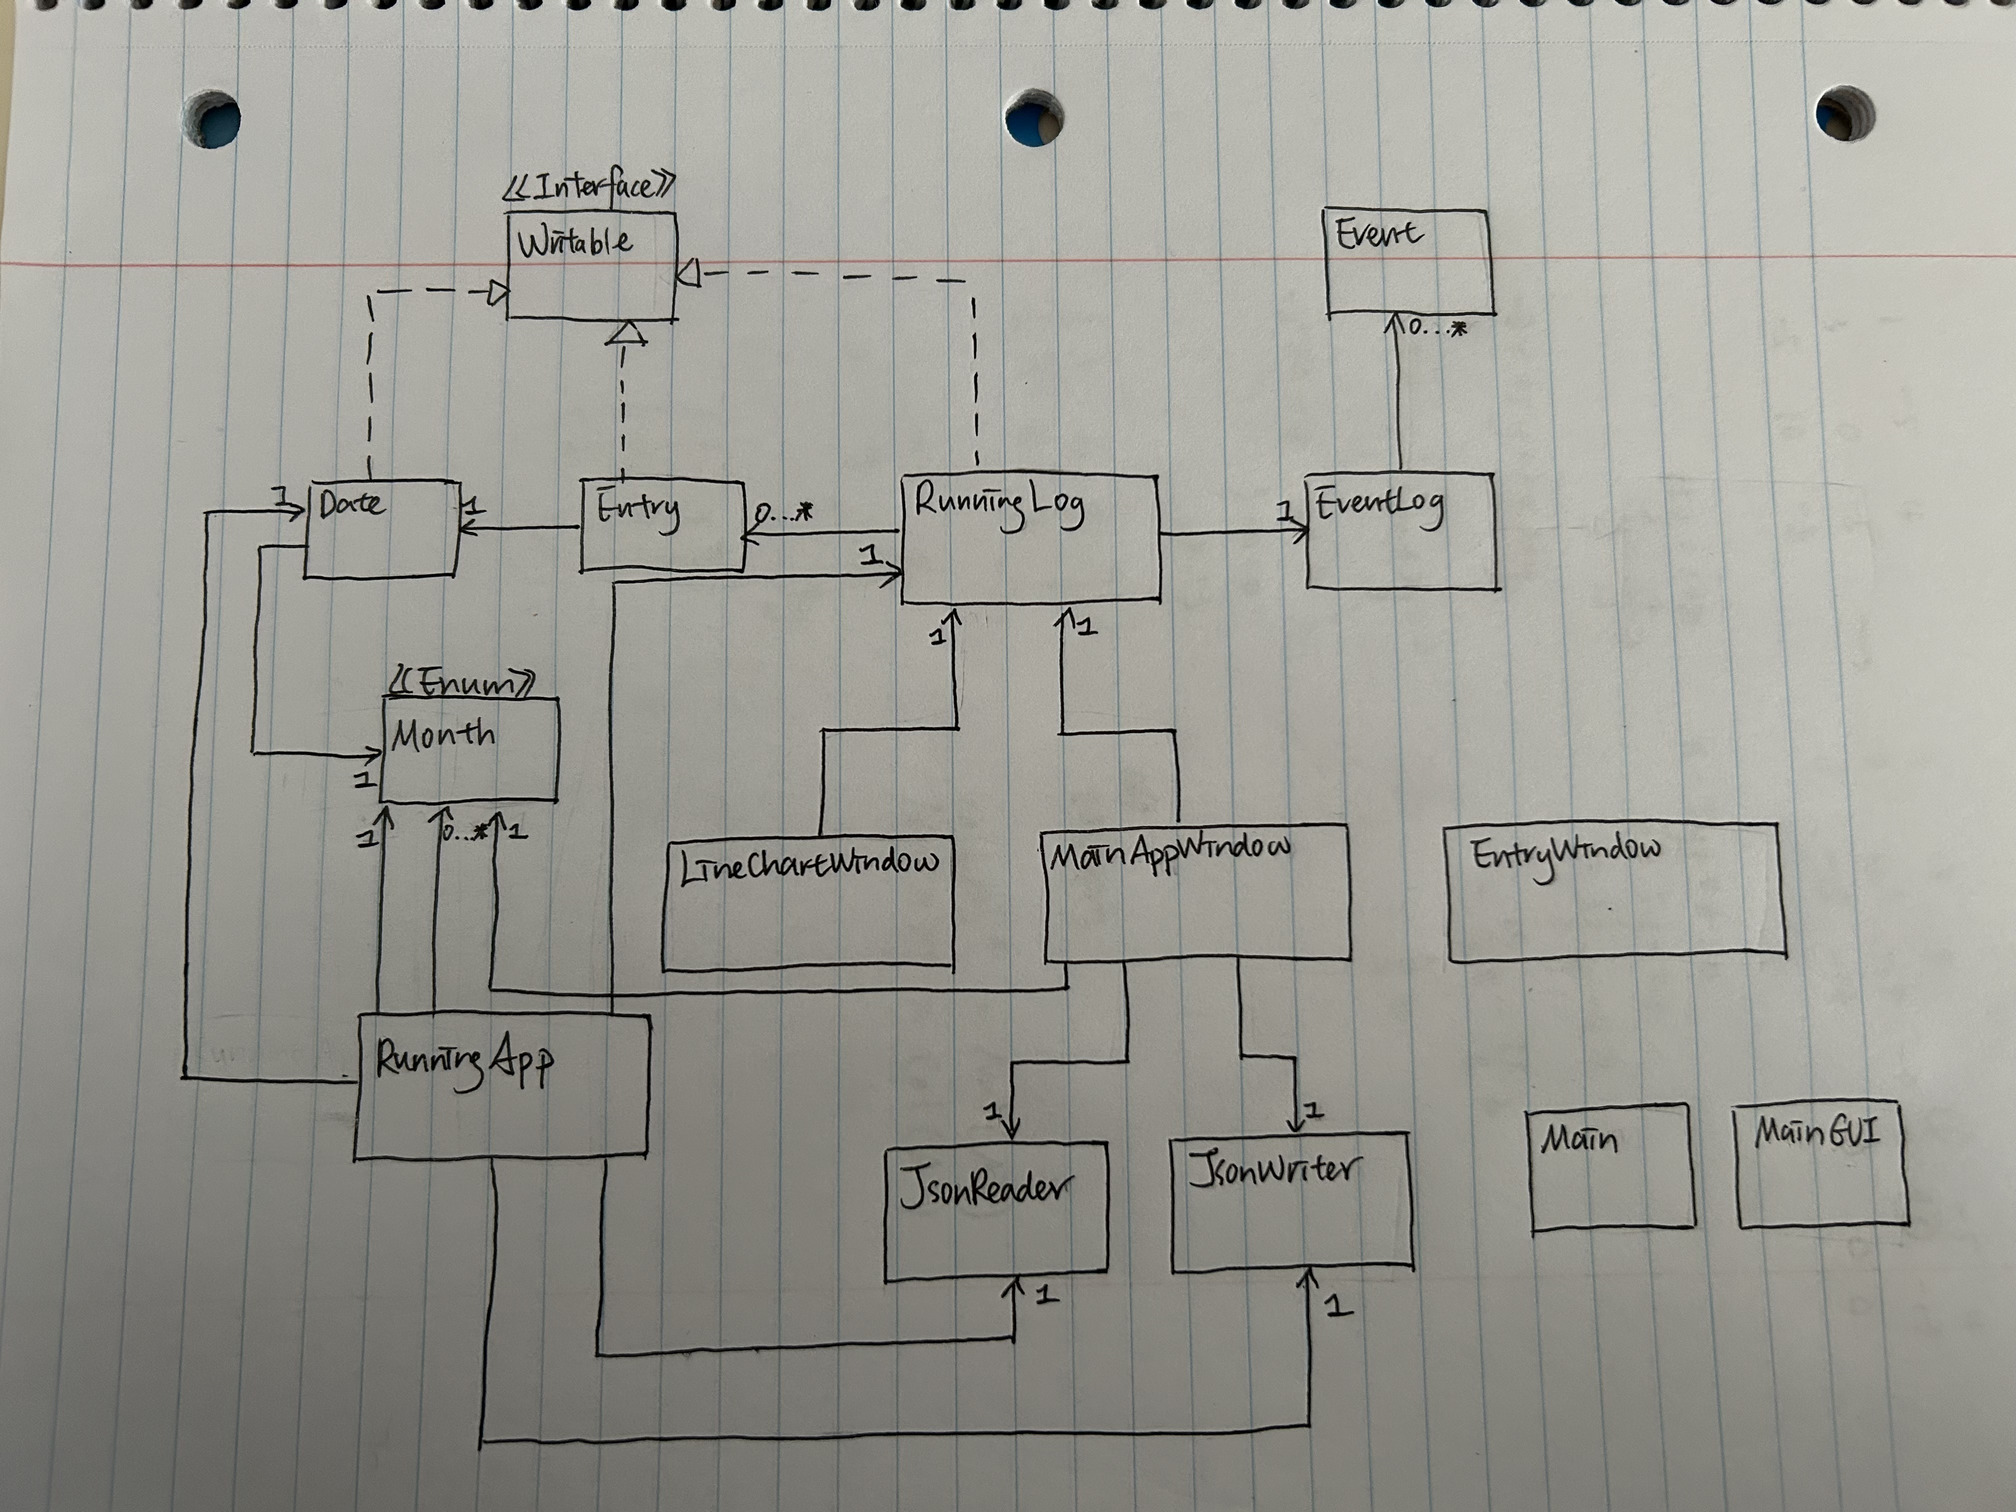 <<Interface>>
Writable
Event
0...*
1
Date
1
Entry
0...*
RunningLog
1
EventLog
1
1
1
<<Enum>>
Month
1
1
0...*
1
LineChartWindow
MainAppWindow
EntryWindow
RunningApp
1
1
JsonReader
JsonWriter
Main
MainGUI
1
1